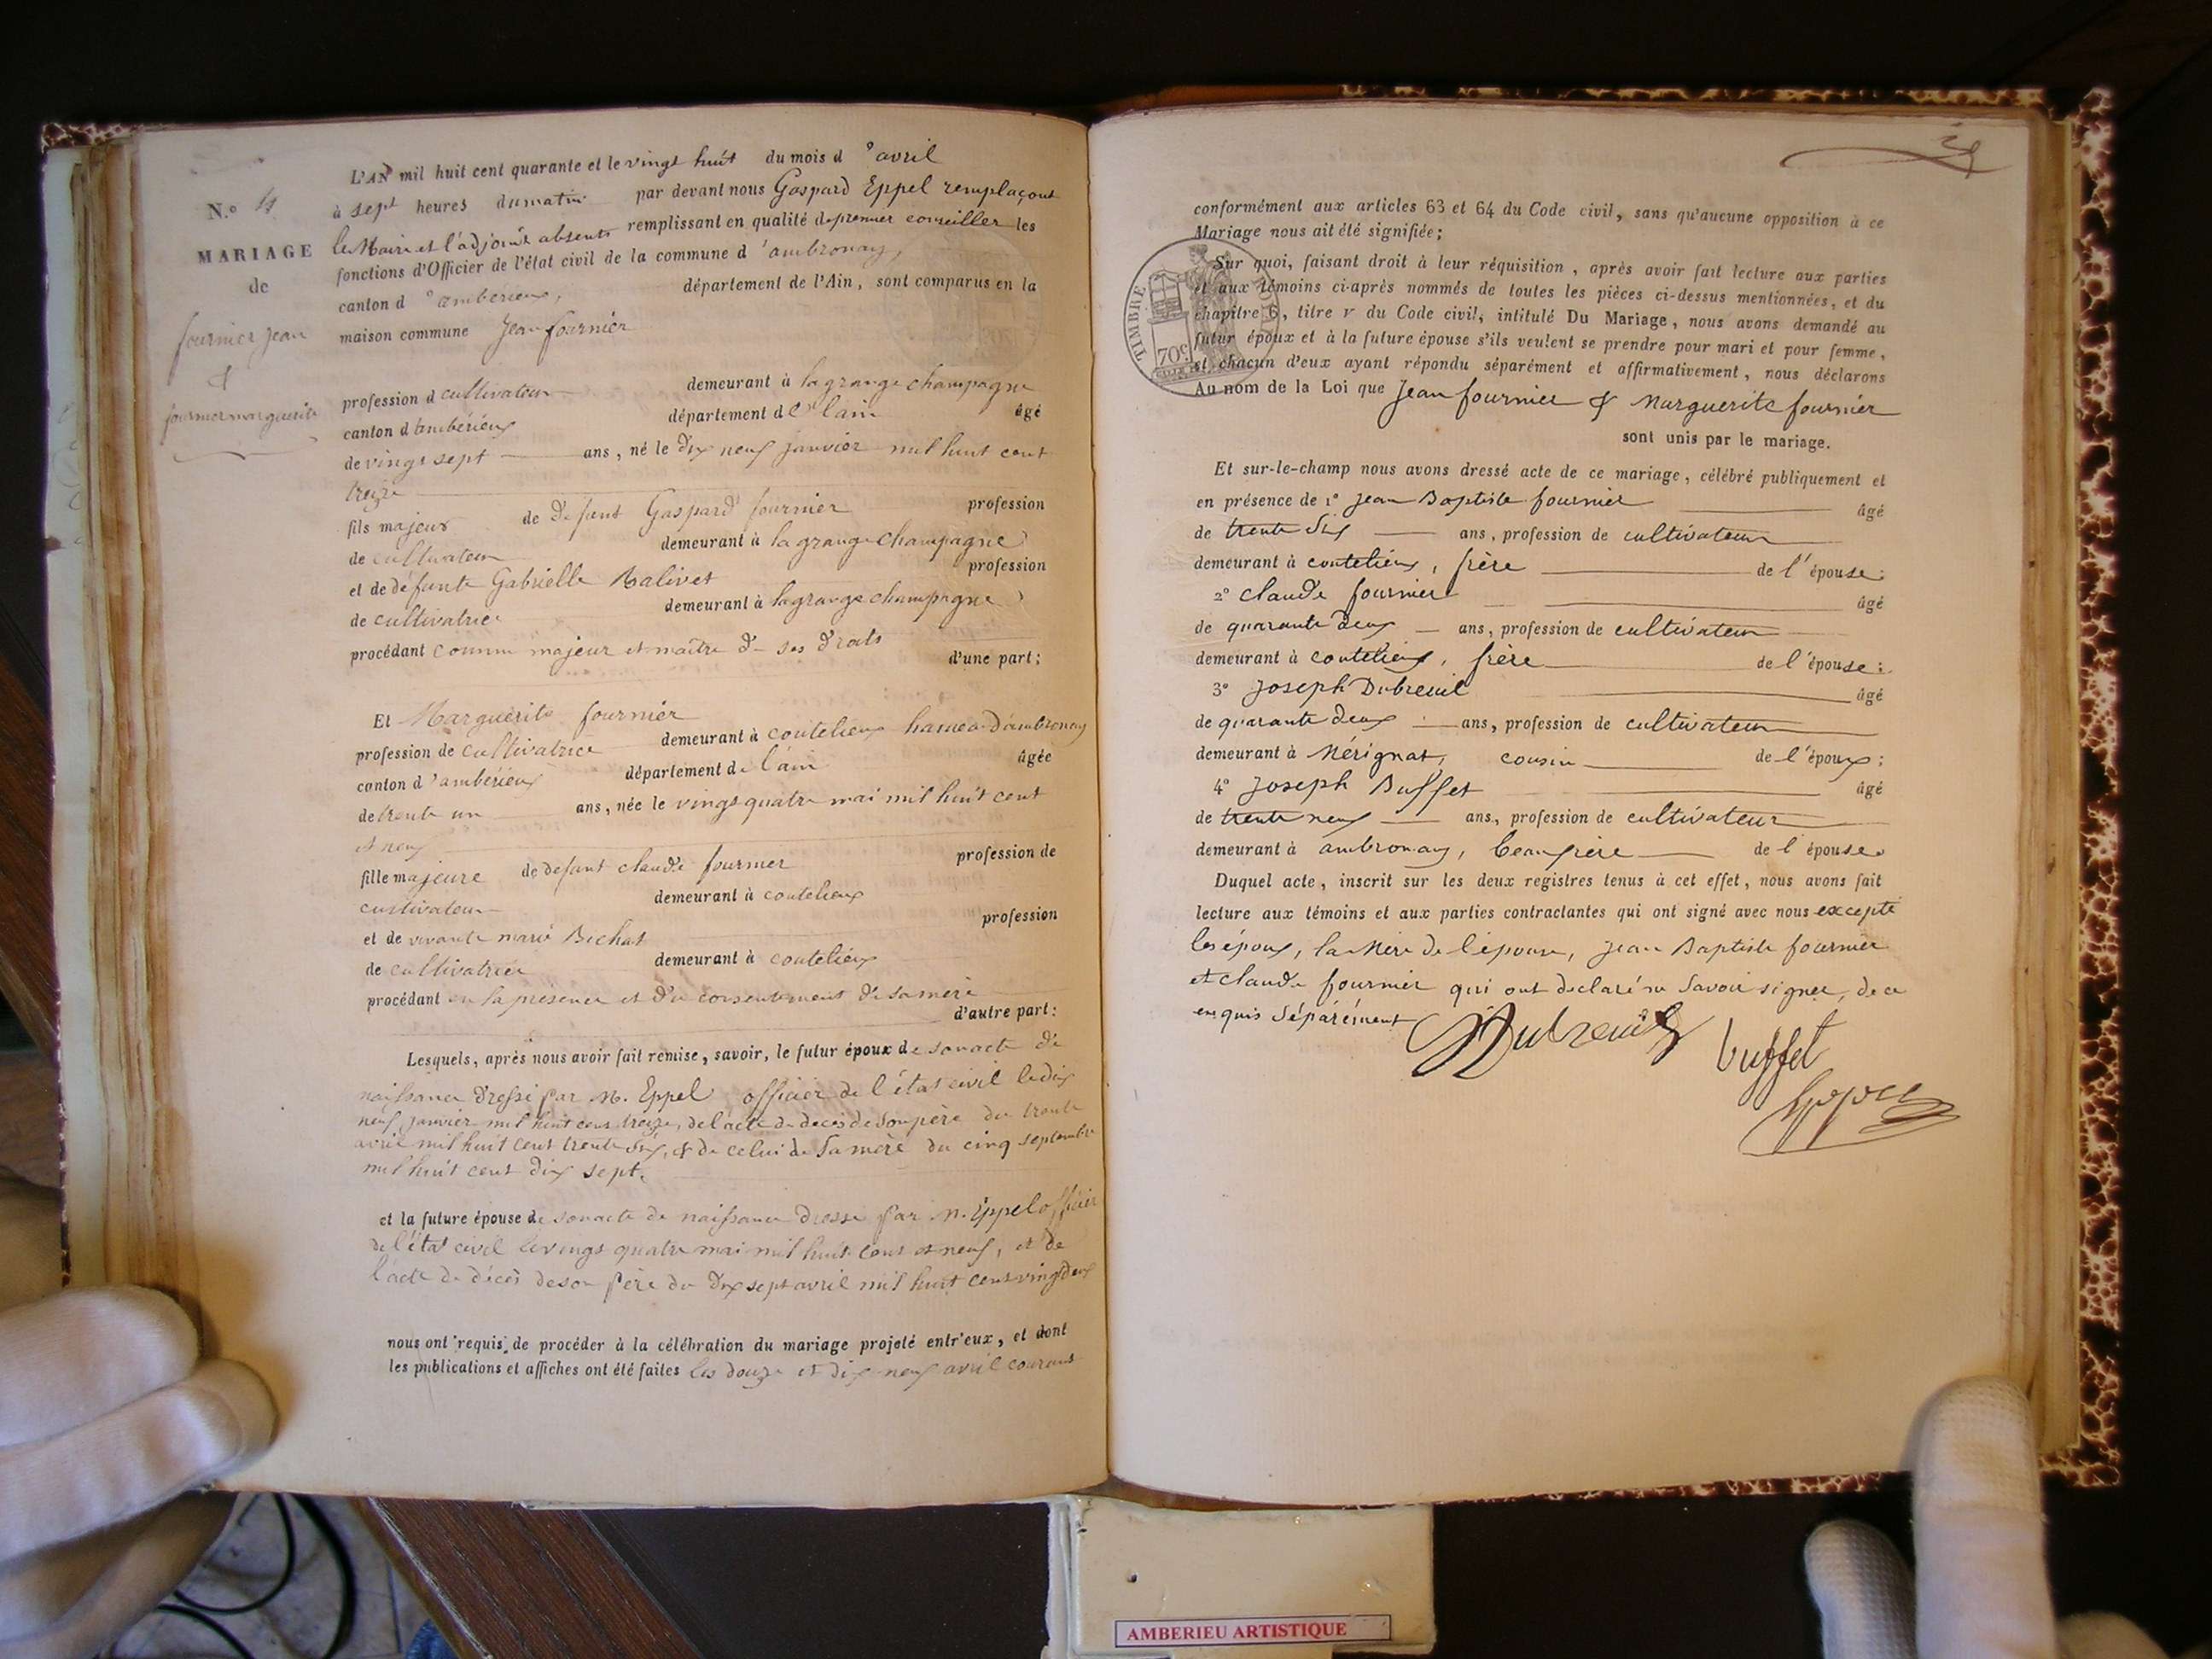 L'AN mil huit cent quarante et le vingt huit du mois d'avril
à sept heures du matin par devant nous Gaspard Eppel remplaçant
le Maire et l'adjoint absents remplissant en qualité de premier conseiller les
fonctions d'Officier de l'état civil de la commune d'ambronay,
canton d'ambérieux, département de l'Ain, sont comparus en la
maison commune Jean fournier
N.º
MARIAGE
de
fournier Jean
&
fournier marguerite
profession d cultivateur demeurant à la grange champagne
canton d'ambérieux département de l'ain âgé
de vingt sept ans, né le dix neuf janvier mil huit cent
treize
fils majeur de défunt Gaspard fournier profession
de cultivateur demeurant à la grange champagne
et de défunte Gabrielle Balivet profession
de cultivatrice demeurant à la grange champagne
procédant comme majeur et maître de ses droits
d'une part;
Et Marguerite fournier
profession de cultivatrice demeurant à coutelieux hameau d'ambronay
canton d'ambérieux département de l'ain âgée
de trente un ans, née le vingt quatre mai mil huit cent
et neuf
fille majeure de defunt claude fournier profession de
cultivateur demeurant à coutelieux
et de vivante marie Bichat profession
de cultivatrice demeurant à coutelieux
procédant en la présence et du consentement de sa mère
d'autre part:
Lesquels, après nous avoir fait remise, savoir, le futur époux de son acte de
naissance dressé par M. Eppel officier de l'état civil le dix
neuf janvier mil huit cent treize, de l'acte de décès de son père du trente
avril mil huit cent trente six, & de celui de sa mère du cinq septembre
mil huit cent dix sept.
et la future épouse de son acte de naissance dressé par M. Eppel officier
de l'état civil le vingt quatre mai mil huit cent et neuf, et de
l'acte de décès de son père du dix sept avril mil huit cent vingt deux
nous ont requis de procéder à la célébration du mariage projeté entr'eux, et dont
les publications et affiches ont été faites les douze et dix neuf avril courant
conformément aux articles 63 et 64 du Code civil, sans qu'aucune opposition à ce
Mariage nous ait été signifiée;
Sur quoi, faisant droit à leur réquisition, après avoir fait lecture aux parties
et aux témoins ci-après nommés de toutes les pièces ci-dessus mentionnées, et du
chapitre 6, titre v du Code civil, intitulé Du Mariage, nous avons demandé au
futur époux et à la future épouse s'ils veulent se prendre pour mari et pour femme,
et chacun d'eux ayant répondu séparément et affirmativement, nous déclarons
Au nom de la Loi que Jean fournier & Marguerite fournier
sont unis par le mariage.
TIMBRE ROYAL
70c
Et sur-le-champ nous avons dressé acte de ce mariage, célébré publiquement et
en présence de 1º Jean Baptiste fournier âgé
de trente six ans, profession de cultivateur
demeurant à coutelieux, frère de l'épouse;
2º claude fournier âgé
de quarante deux ans, profession de cultivateur
demeurant à coutelieux, frère de l'épouse;
3º Joseph Dubreuil âgé
de quarante deux ans, profession de cultivateur
demeurant à Mérignat, cousin de l'époux;
4º Joseph Buffet âgé
de trente neuf ans, profession de cultivateur
demeurant à ambronay, beaufrère de l'épouse.
Duquel acte, inscrit sur les deux registres tenus à cet effet, nous avons fait
lecture aux témoins et aux parties contractantes qui ont signé avec nous excepté
les époux, la Mère de l'épouse, Jean Baptiste fournier
et claude fournier qui ont déclaré ne savoir signer, de ce
enquis séparément
Dubreuil buffet
Eppel
AMBERIEU ARTISTIQUE